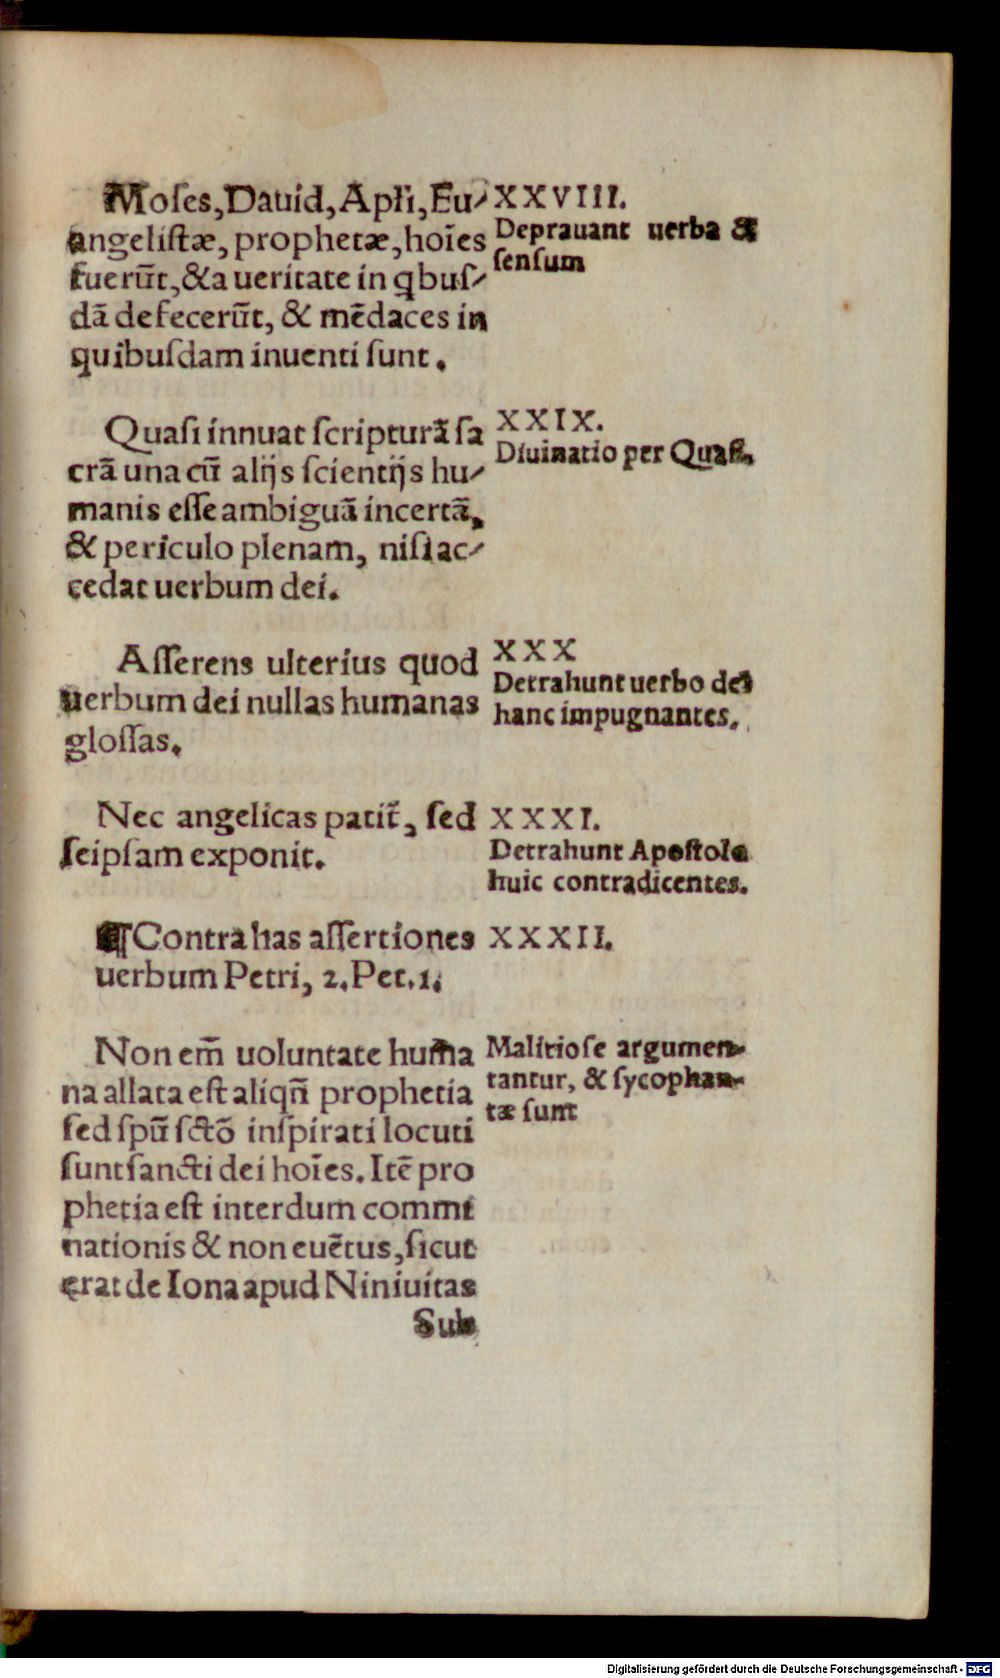 Moſes, Dauid, Apłi, Eu⸗
angeliſtæ, prophetæ, hoīes
fuerūt, & a ueritate in qbuſ⸗
dā defecerūt, & mēdaces in
quibuſdam inuenti ſunt.
XXVIII.
Deprauant uerba &
ſenſum
Quaſi innuat ſcripturā ſa
crā una cū alijs ſcientijs hu⸗
manis eſſe ambiguā incertā,
& periculo plenam, niſi ac⸗
cedat uerbum dei.
XXIX.
Diuinatio per Quaſi.
Aſſerens ulterius quod
uerbum dei nullas humanas
gloſſas.
XXX
Detrahunt uerbo dei
hanc impugnantes.
Nec angelicas patit̄, ſed
ſeipſam exponit.
XXXI.
Detrahunt Apoſtolo
huic contradicentes.
¶Contra has aſſertiones
uerbum Petri, 2. Pet. 1.
XXXII.
Non em̄ uoluntate huma
na allata eſt aliqn̄ prophetia
ſed ſpū ſctō inſpirati locuti
ſunt ſancti dei hoīes. Itē pro
phetia eſt interdum commi
nationis & non euētus, ſicut
erat de Iona apud Niniuitas
Malitioſe argumen⸗
tantur, & ſycophan⸗
tæ ſunt
Sub
Digitalisierung gefördert durch die Deutsche Forschungsgemeinschaft - DFG